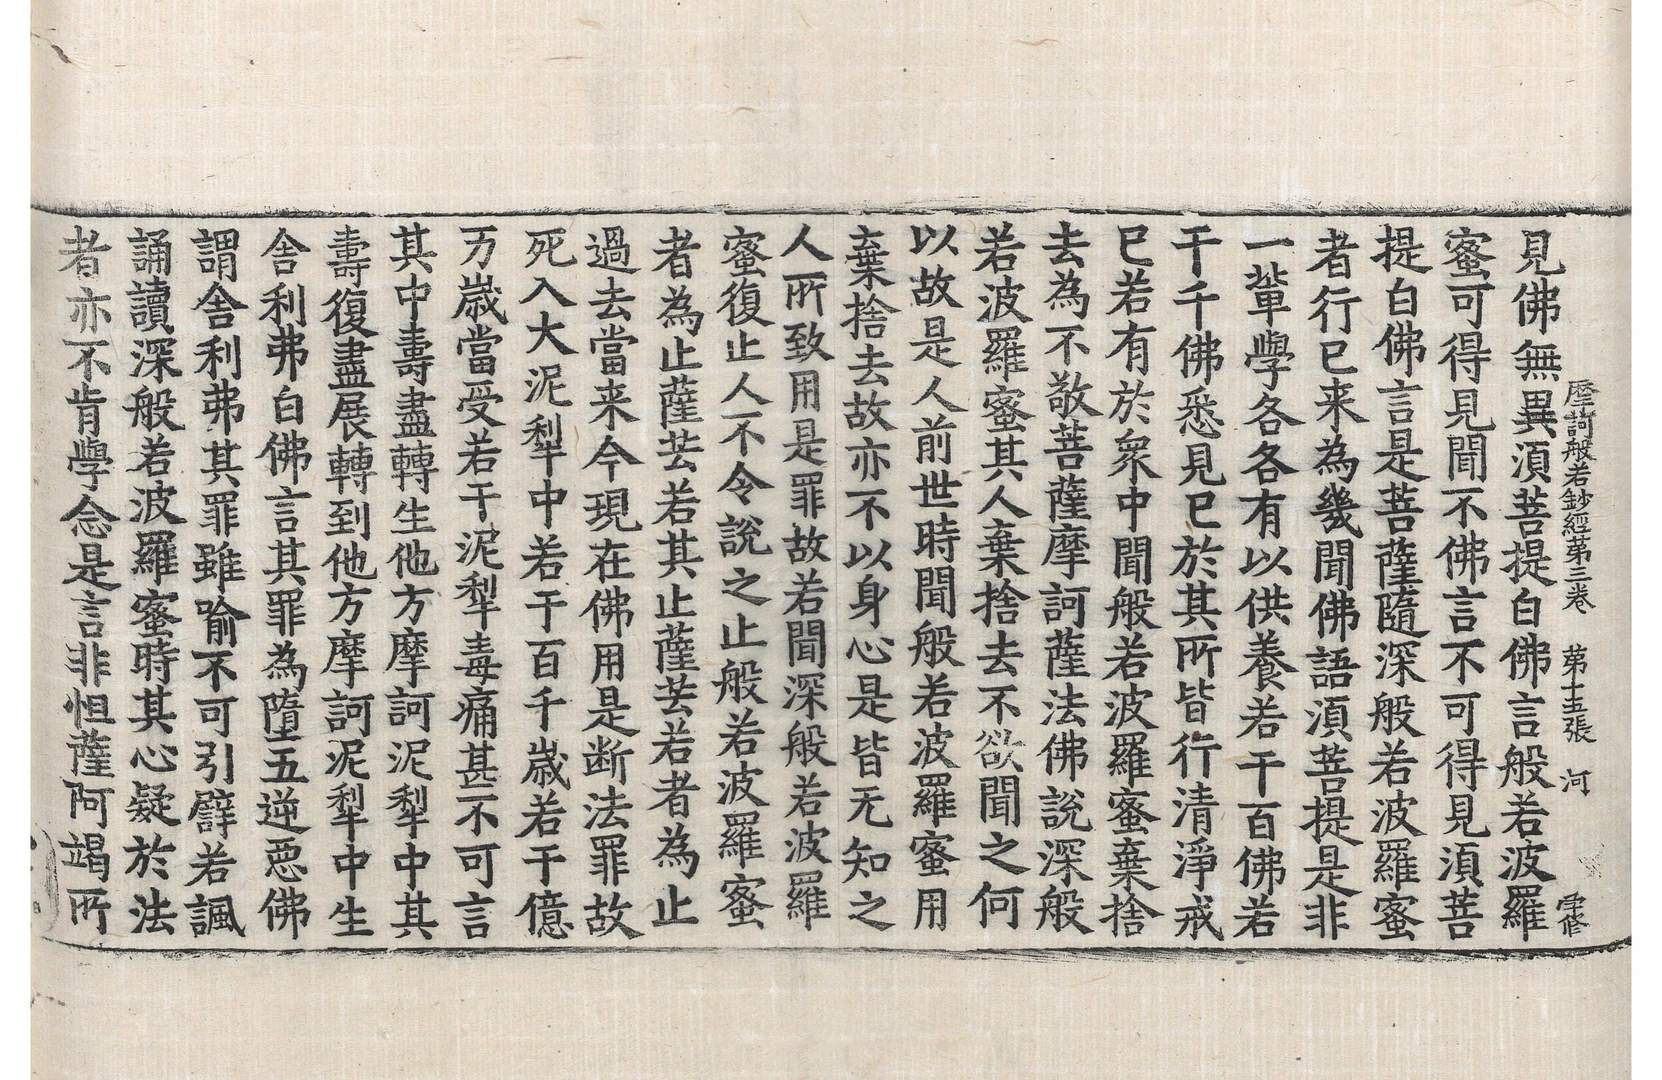 摩訶般若鈔經第三卷　第十五張　河
見佛無異湏菩提白佛言般若波羅
蜜可得見聞不佛言不可得見湏菩
提白佛言是菩薩隨深般若波羅蜜
者行已来為幾聞佛語湏菩提是非
一軰學各各有以供養若干百佛若
干千佛悉見已於其所皆行清淨戒
已若有於衆中聞般若波羅蜜棄捨
去為不敬菩薩摩訶薩法佛說深般
若波羅蜜其人棄捨去不欲聞之何
以故是人前世時聞般若波羅蜜用
棄捨去故亦不以身心是皆无知之
人所致用是罪故若聞深般若波羅
蜜復止人不令說之止般若波羅蜜
者為止薩芸若其止薩芸若者為止
過去當来今現在佛用是断法罪故
死入大泥犁中若干百千歲若干億
万歲當受若干泥犁毒痛甚不可言
其中壽盡轉生他方摩訶泥犁中其
壽復盡展轉到他方摩訶泥犁中生
舍利弗白佛言其罪為墮五逆惡佛
謂舍利弗其罪雖喻不可引譬若諷
誦讀深般若波羅蜜時其心疑於法
者亦不肯學念是言非怛薩阿竭所